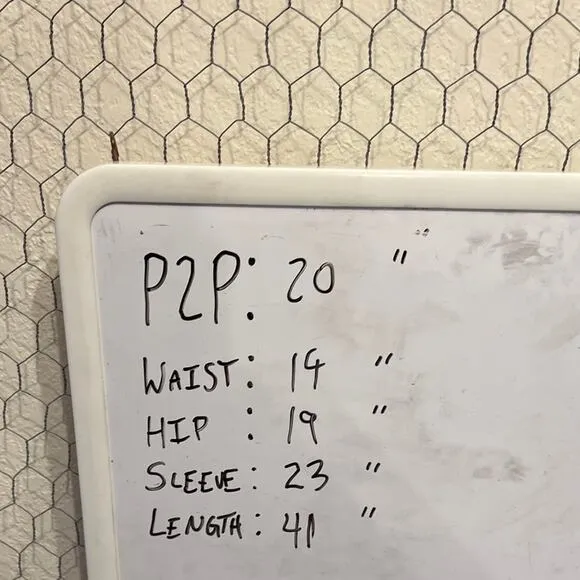 P2P: 20 "
WAIST: 14 "
HIP : 19 "
SLEEVE: 23 "
LENGTH: 41 "